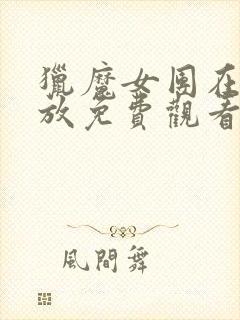 獵魔女團在
放免費觀看
風間舞